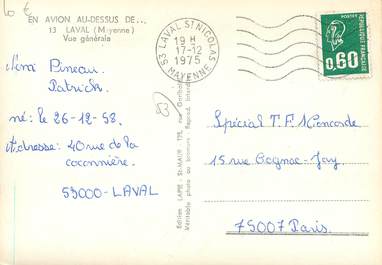 10 €
EN AVION AU-DESSUS DE...
13 LAVAL (Mayenne)
Vue générale
53 LAVAL ST NICOLAS
19 H
17-12
1975
MAYENNE
POSTES
0,60
REPUBLIQUE FRANCAISE
Pineau
Patrick
né: le 26-12-58.
Adresse: 40 rue de la
coconnière.
53000-LAVAL
53
Edition LAPIE - St-MAUR
Véritable photo au bromure - Reprod. interd.
Spécial T.F.1 Concorde
15 rue Cognac-Jay.
75007 Paris.